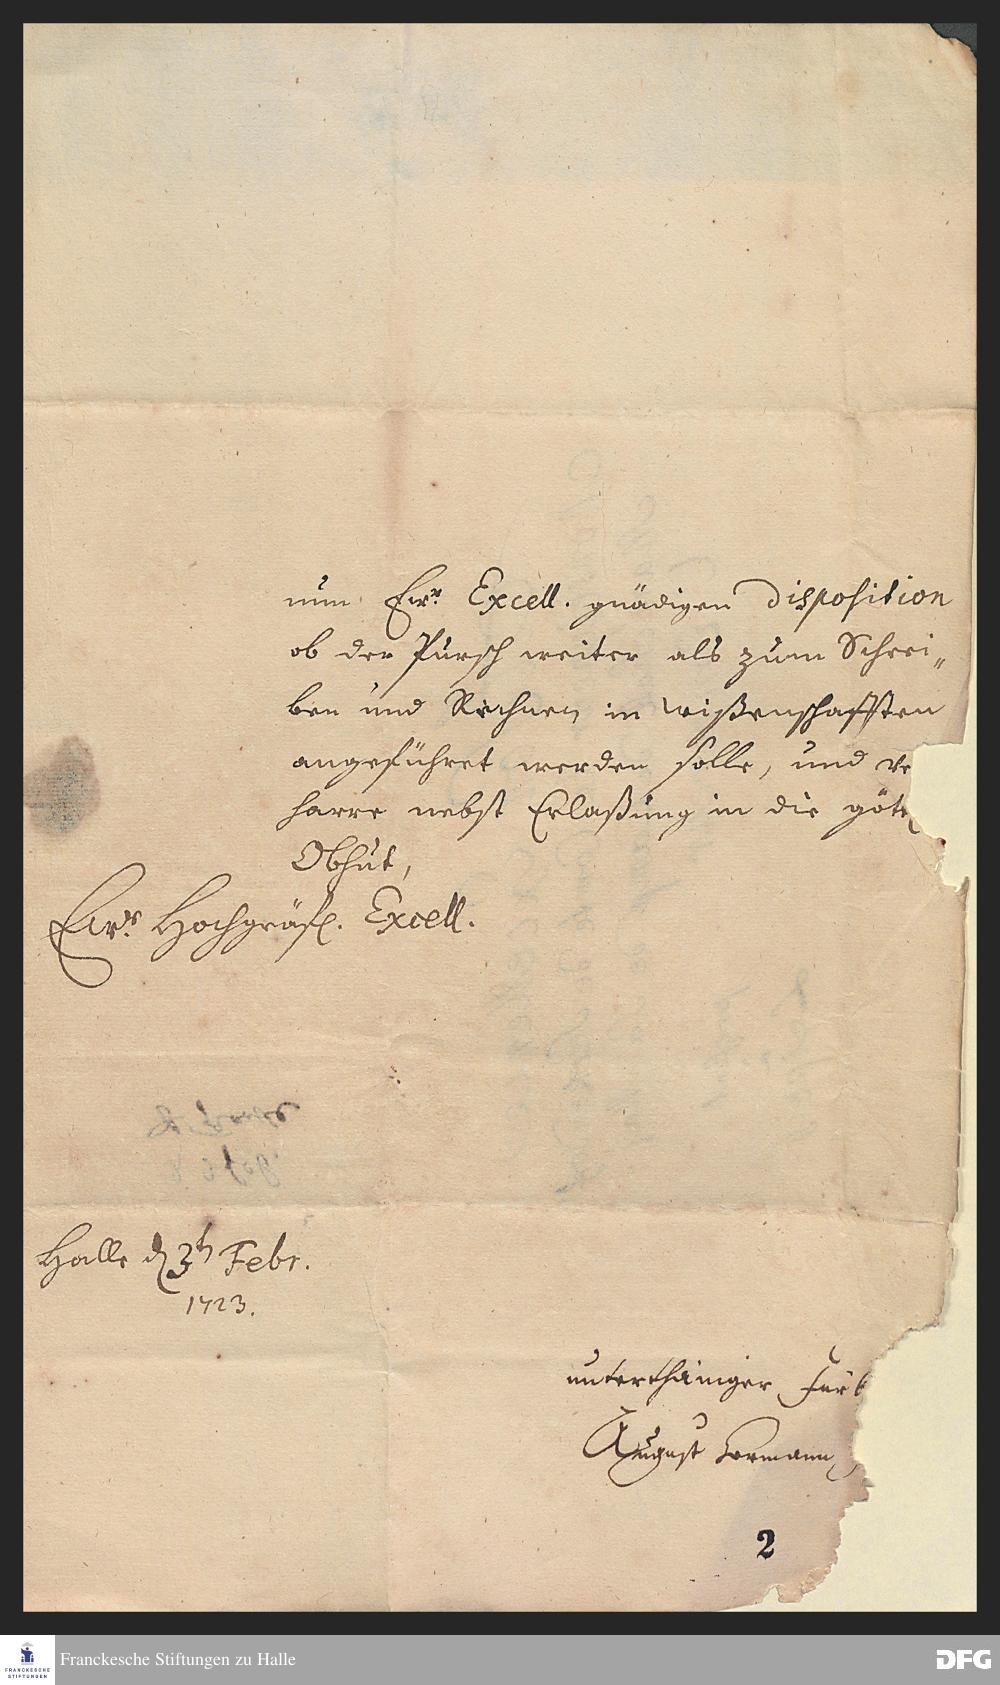 nun Ewr. Excell. gnädigen Disposition
ob der Pursch weiter als zum Schrei„
ben und Rechnen in Wißenschafften
angeführet werden solle, und ve
harre nebst Erlaßung in die gött
Obhut,
Ewr. Hochgräfl. Excell.
Halle d 3th Febr.
1723.
unterthäniger Fürb
August
2
FRANCKESCHE
STIFTUNGEN
Franckesche Stiftungen zu Halle
DFG